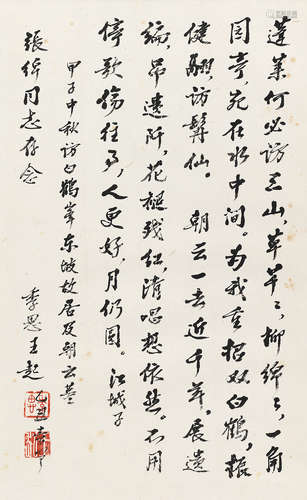 蓬萊何必訪三山,草芊々,柳綿々,一角
园亭,宛在水中间。为我重招双白鶴,振
健翮,訪髯仙。 朝云一去近千年。展遺
编,吊遺阡,花褪残红,清唱想依然。不用
停歌傷往事,人更好,月仍圆。江城子
甲子中秋訪白鶴峯东坡故居及朝云墓
張綽同志存念
季思王起